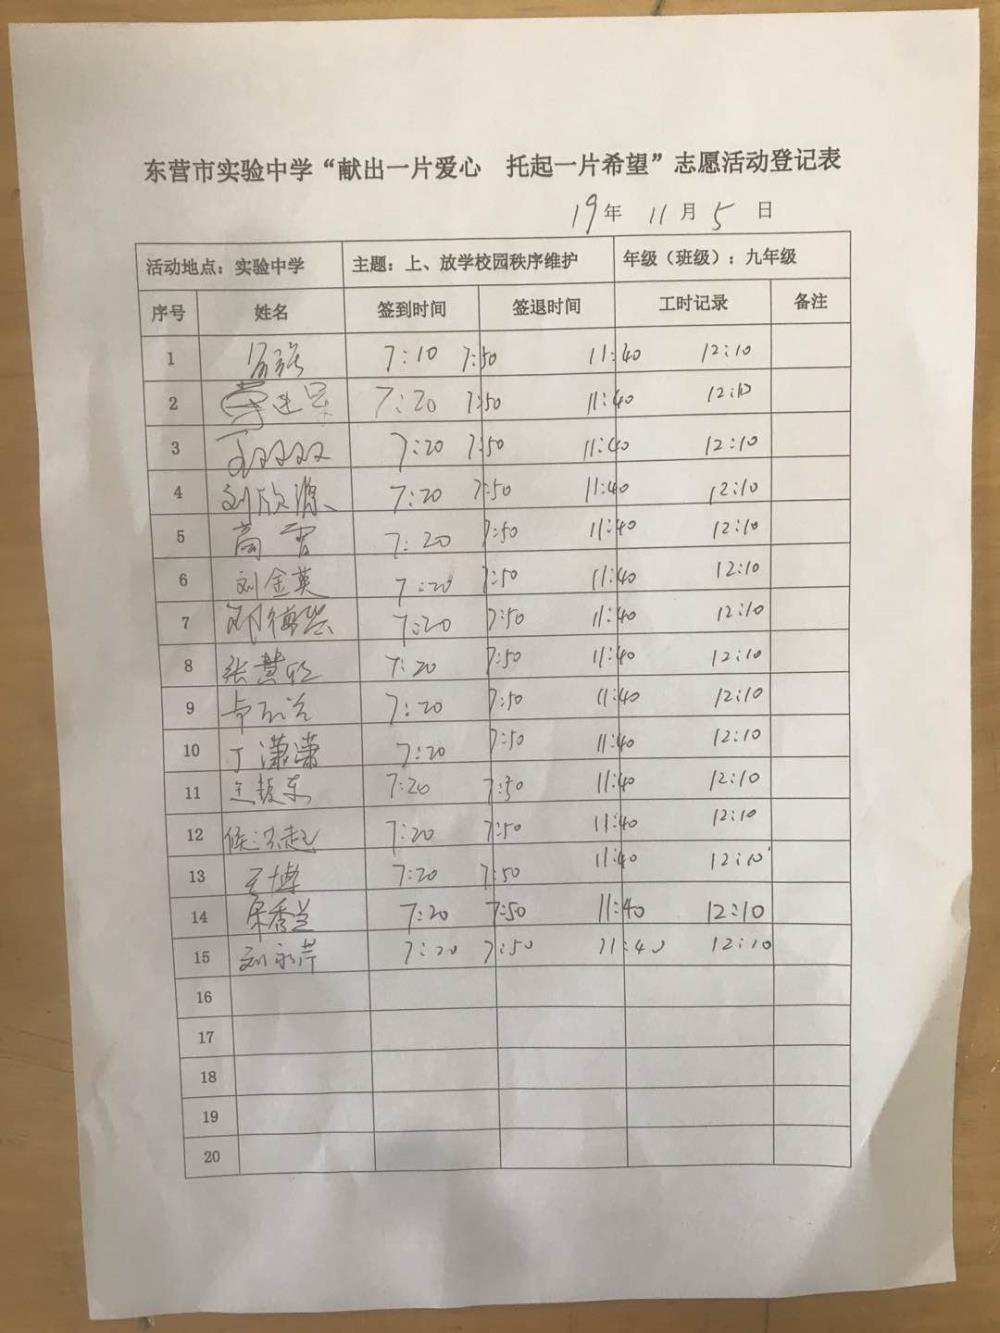 东营市实验中学“献出一片爱心 托起一片希望”志愿活动登记表
19年 11月 5日
活动地点：实验中学 主题：上、放学校园秩序维护 年级（班级）：九年级
序号 姓名 签到时间 签退时间 工时记录 备注
1 7:10 7:50 11:40 12:10
2 7:20 7:50 11:40 12:10
3 7:20 7:50 11:40 12:10
4 刘欣源 7:20 7:50 11:40 12:10
5 高雪 7:20 7:50 11:40 12:10
6 刘金英 7:20 7:50 11:40 12:10
7 7:20 7:50 11:40 12:10
8 张慧 7:20 7:50 11:40 12:10
9 7:20 7:50 11:40 12:10
10 丁潇潇 7:20 7:50 11:40 12:10
11 7:20 7:50 11:40 12:10
12 7:20 7:50 11:40 12:10
13 王博 7:20 7:50 11:40 12:10
14 秀兰 7:20 7:50 11:40 12:10
15 刘永芹 7:20 7:50 11:40 12:10
16
17
18
19
20